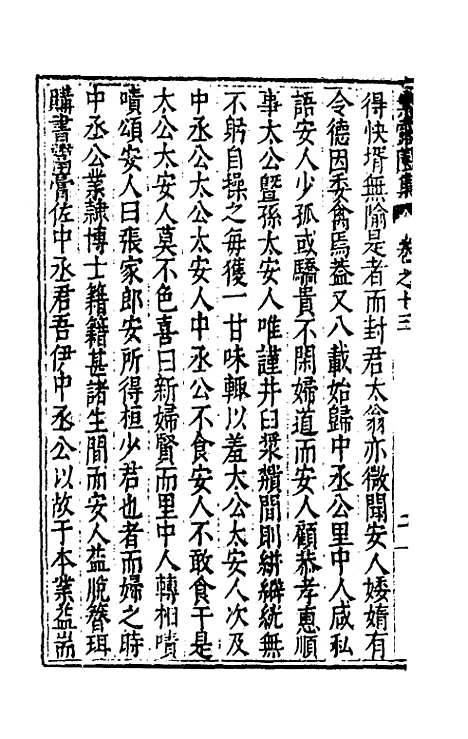 得快壻無踰是者而封君太翁亦微聞安人婑媠有
令德因委禽焉蓋又八載始歸中丞公里中人咸私
語安人少孤或驕貴不閑婦道而安人顧恭孝惠順
事太公曁孫太安人唯謹井臼漿饋間則絣縩統無
不躬自操之每獲一甘味輒以羞太公太安人次及
中丞公太公太安人中丞公不食安人不敢食于是
太公太安人莫不色喜曰新婦賢而里中人轉相嘖
嘖頌安人曰張家郎安所得桓少君也者而婦之時
中丞公業隷博士籍籍甚諸生間而安人益脫簪珥
購書䔳膏佐中丞君吾伊中丞公以故于本業益耑
卷之十三
二